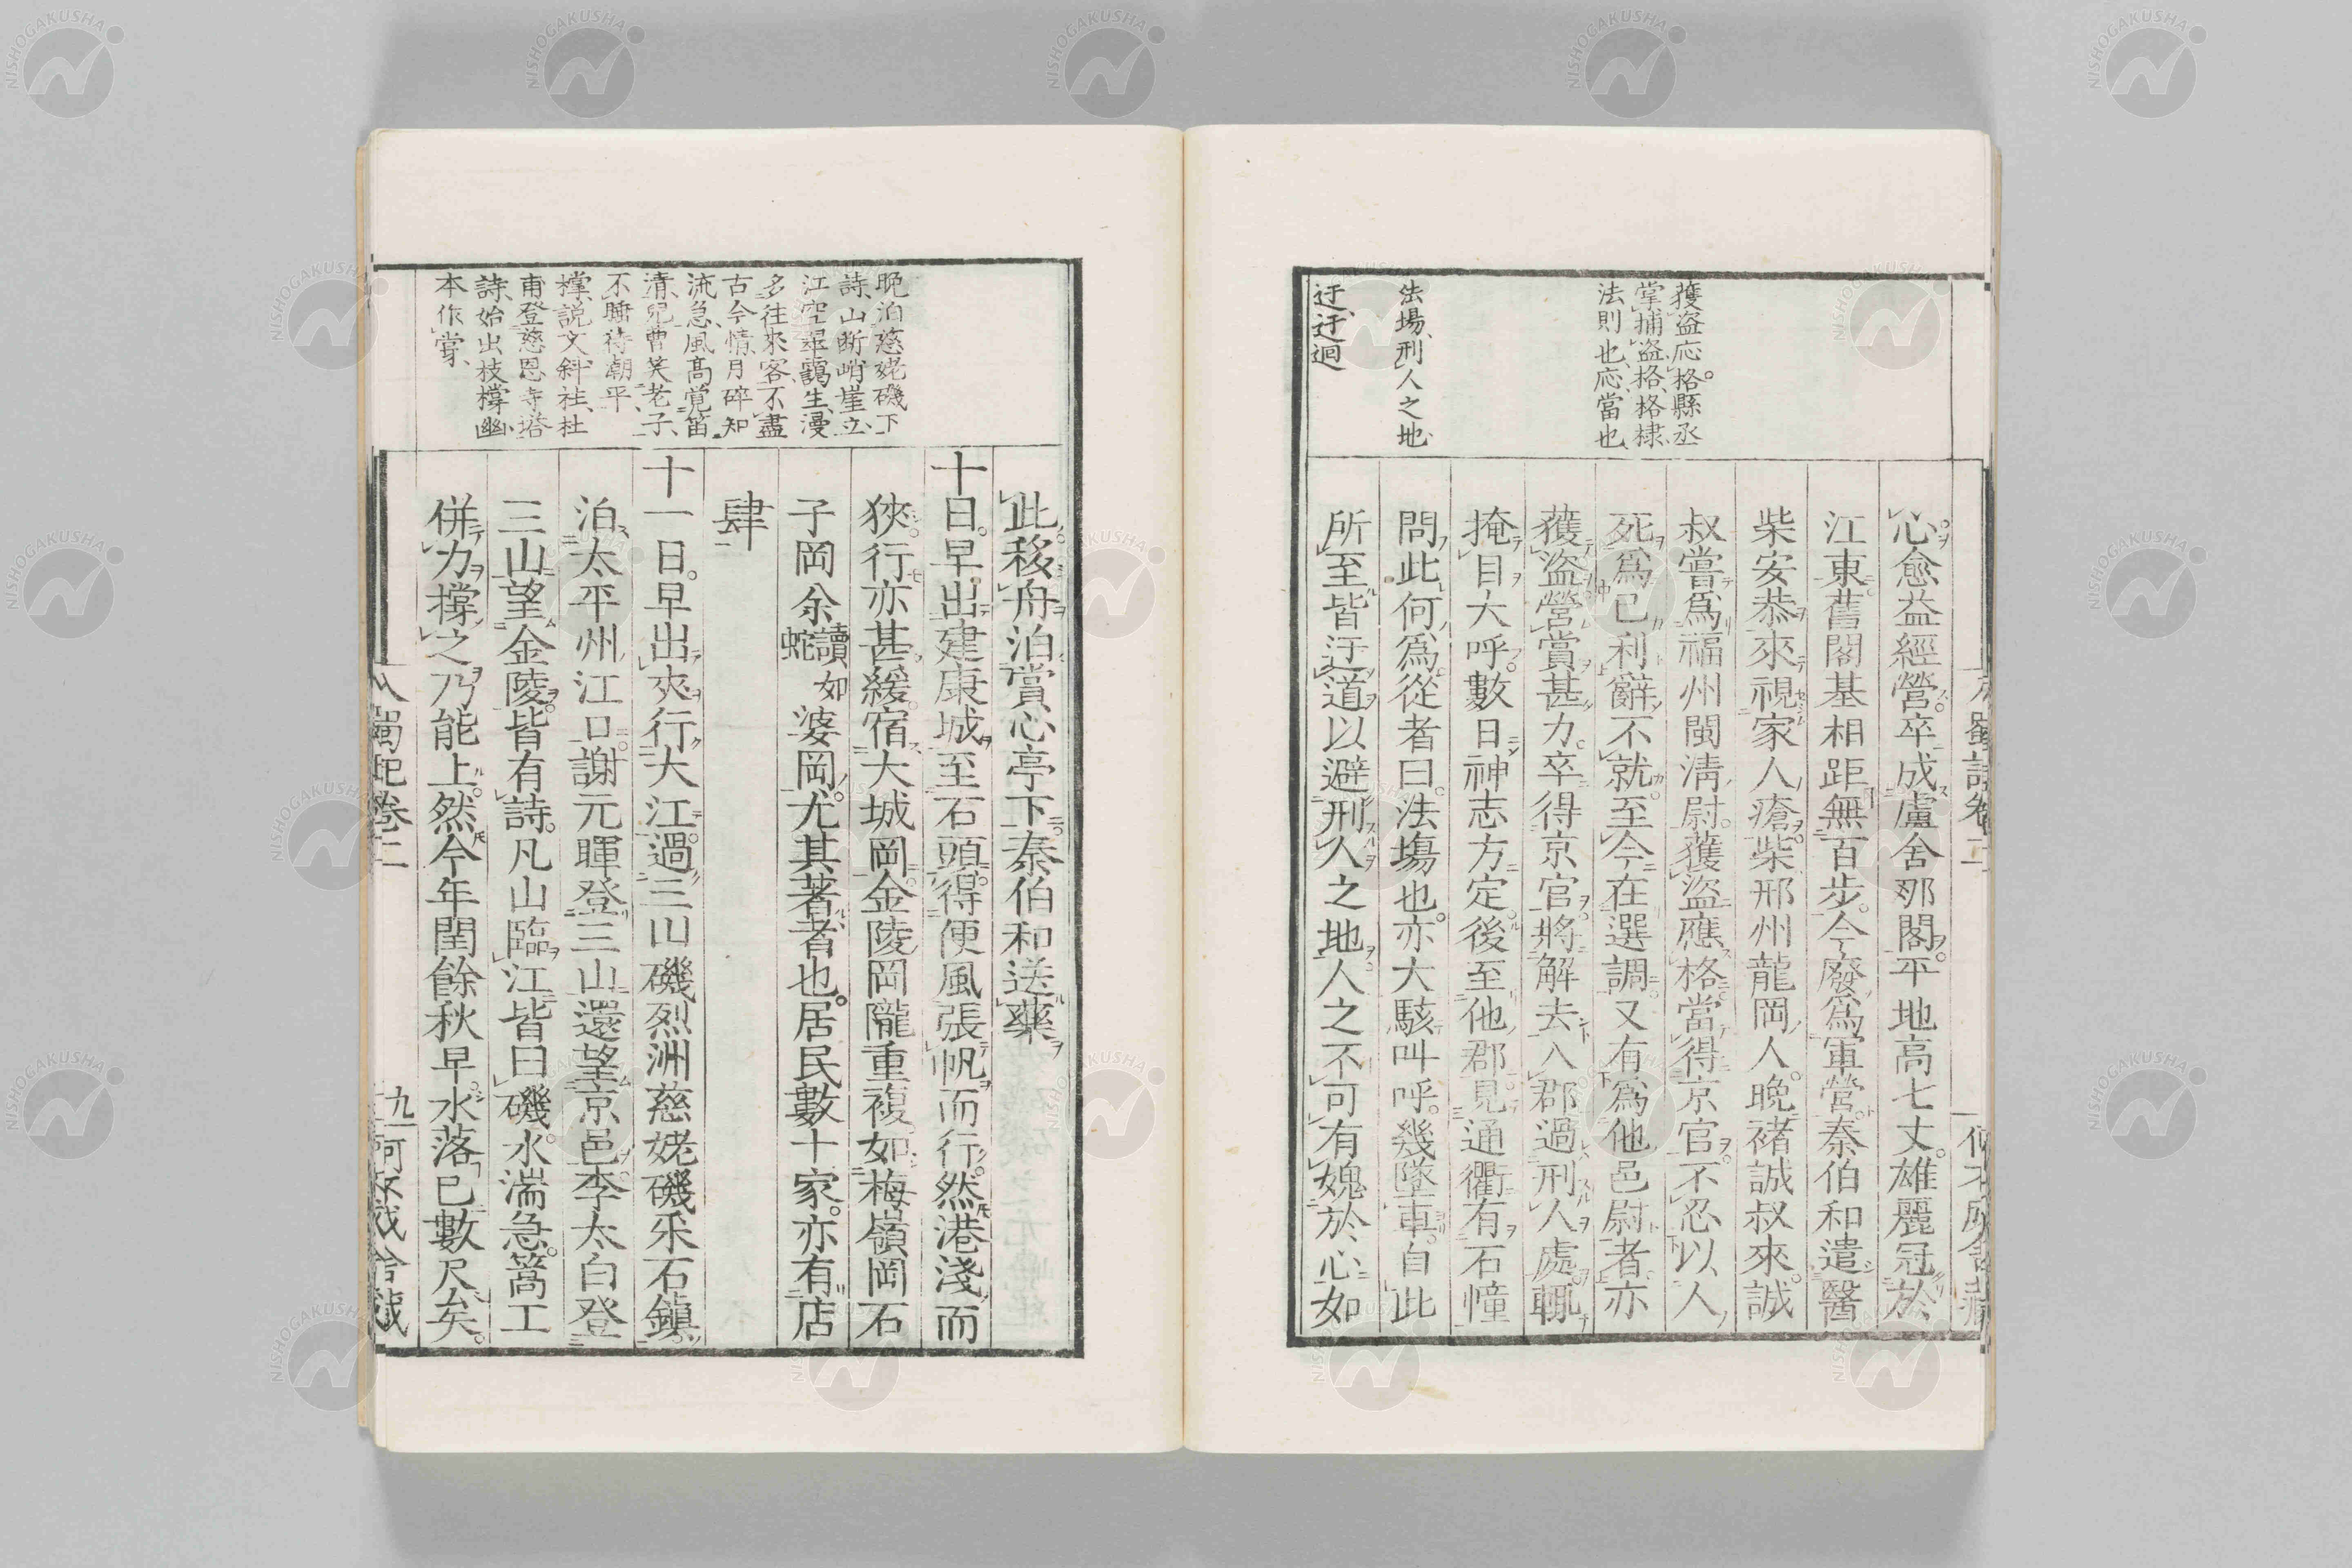 獲盗応格。縣丞
掌捕盗格、格棣
法則也、応、當也、
法場、刑人之地、
迂、迂迴
心愈益經營。卒成盧舍那閣。平地高七丈。雄麗冠於
江東。舊閣基相距無百步。今廢爲軍營。秦伯和遣醫
柴安恭來視家人瘡。柴邢州龍岡人。晩禇誠叔來。誠
叔嘗爲福州閩淸尉。獲盜應格。當得京官。不忍以人
死爲已利。辭不就。至今在選調。又有爲他邑尉者。亦
獲盜。營賞甚力。卒得京官。將解去。入郡過刑人處。輒
掩目大呼。數日神志方定。後至他郡。見通衢有石幢
問此何爲。從者曰。法塲也。亦大駭叫呼。幾墜車。自此
所至皆迂道以避刑人之地。人之不可有媿於心如
晩泊慈姥磯下
詩、山断峭崖立、
江空翠靄生、漫
多往來客、不盡
古今情、月碎知
流急、風高覚笛
清、兒曹笑老子、
不睡待潮平、
撐、説文斜柱、杜
甫登慈恩寺塔
詩、始出枝撐幽、
本作牚、
此移舟泊賞心亭下。秦伯和送藥
十日。早出建康城至石頭。得便風張帆而行。然港淺而
狹。行亦甚緩。宿大城岡。金陵岡隴重複。如梅嶺岡石
子岡佘讀如蛇婆岡。尤其著者也。居民數十家。亦有店
肆
十一日。早出夾行大江。過三山磯烈洲慈姥磯釆石鎭。
泊太平州江口。謝元暉登三山還望京邑。李太白登
三山望金陵。皆有詩。凡山臨江皆曰磯。水湍急。篙工
併力撐之乃能上。然今年閏餘秋早。水落已數尺矣。
入蜀記卷二
九